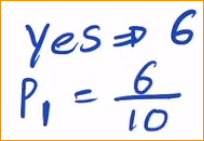 yes ⇒ 6
P₁ = 6/10